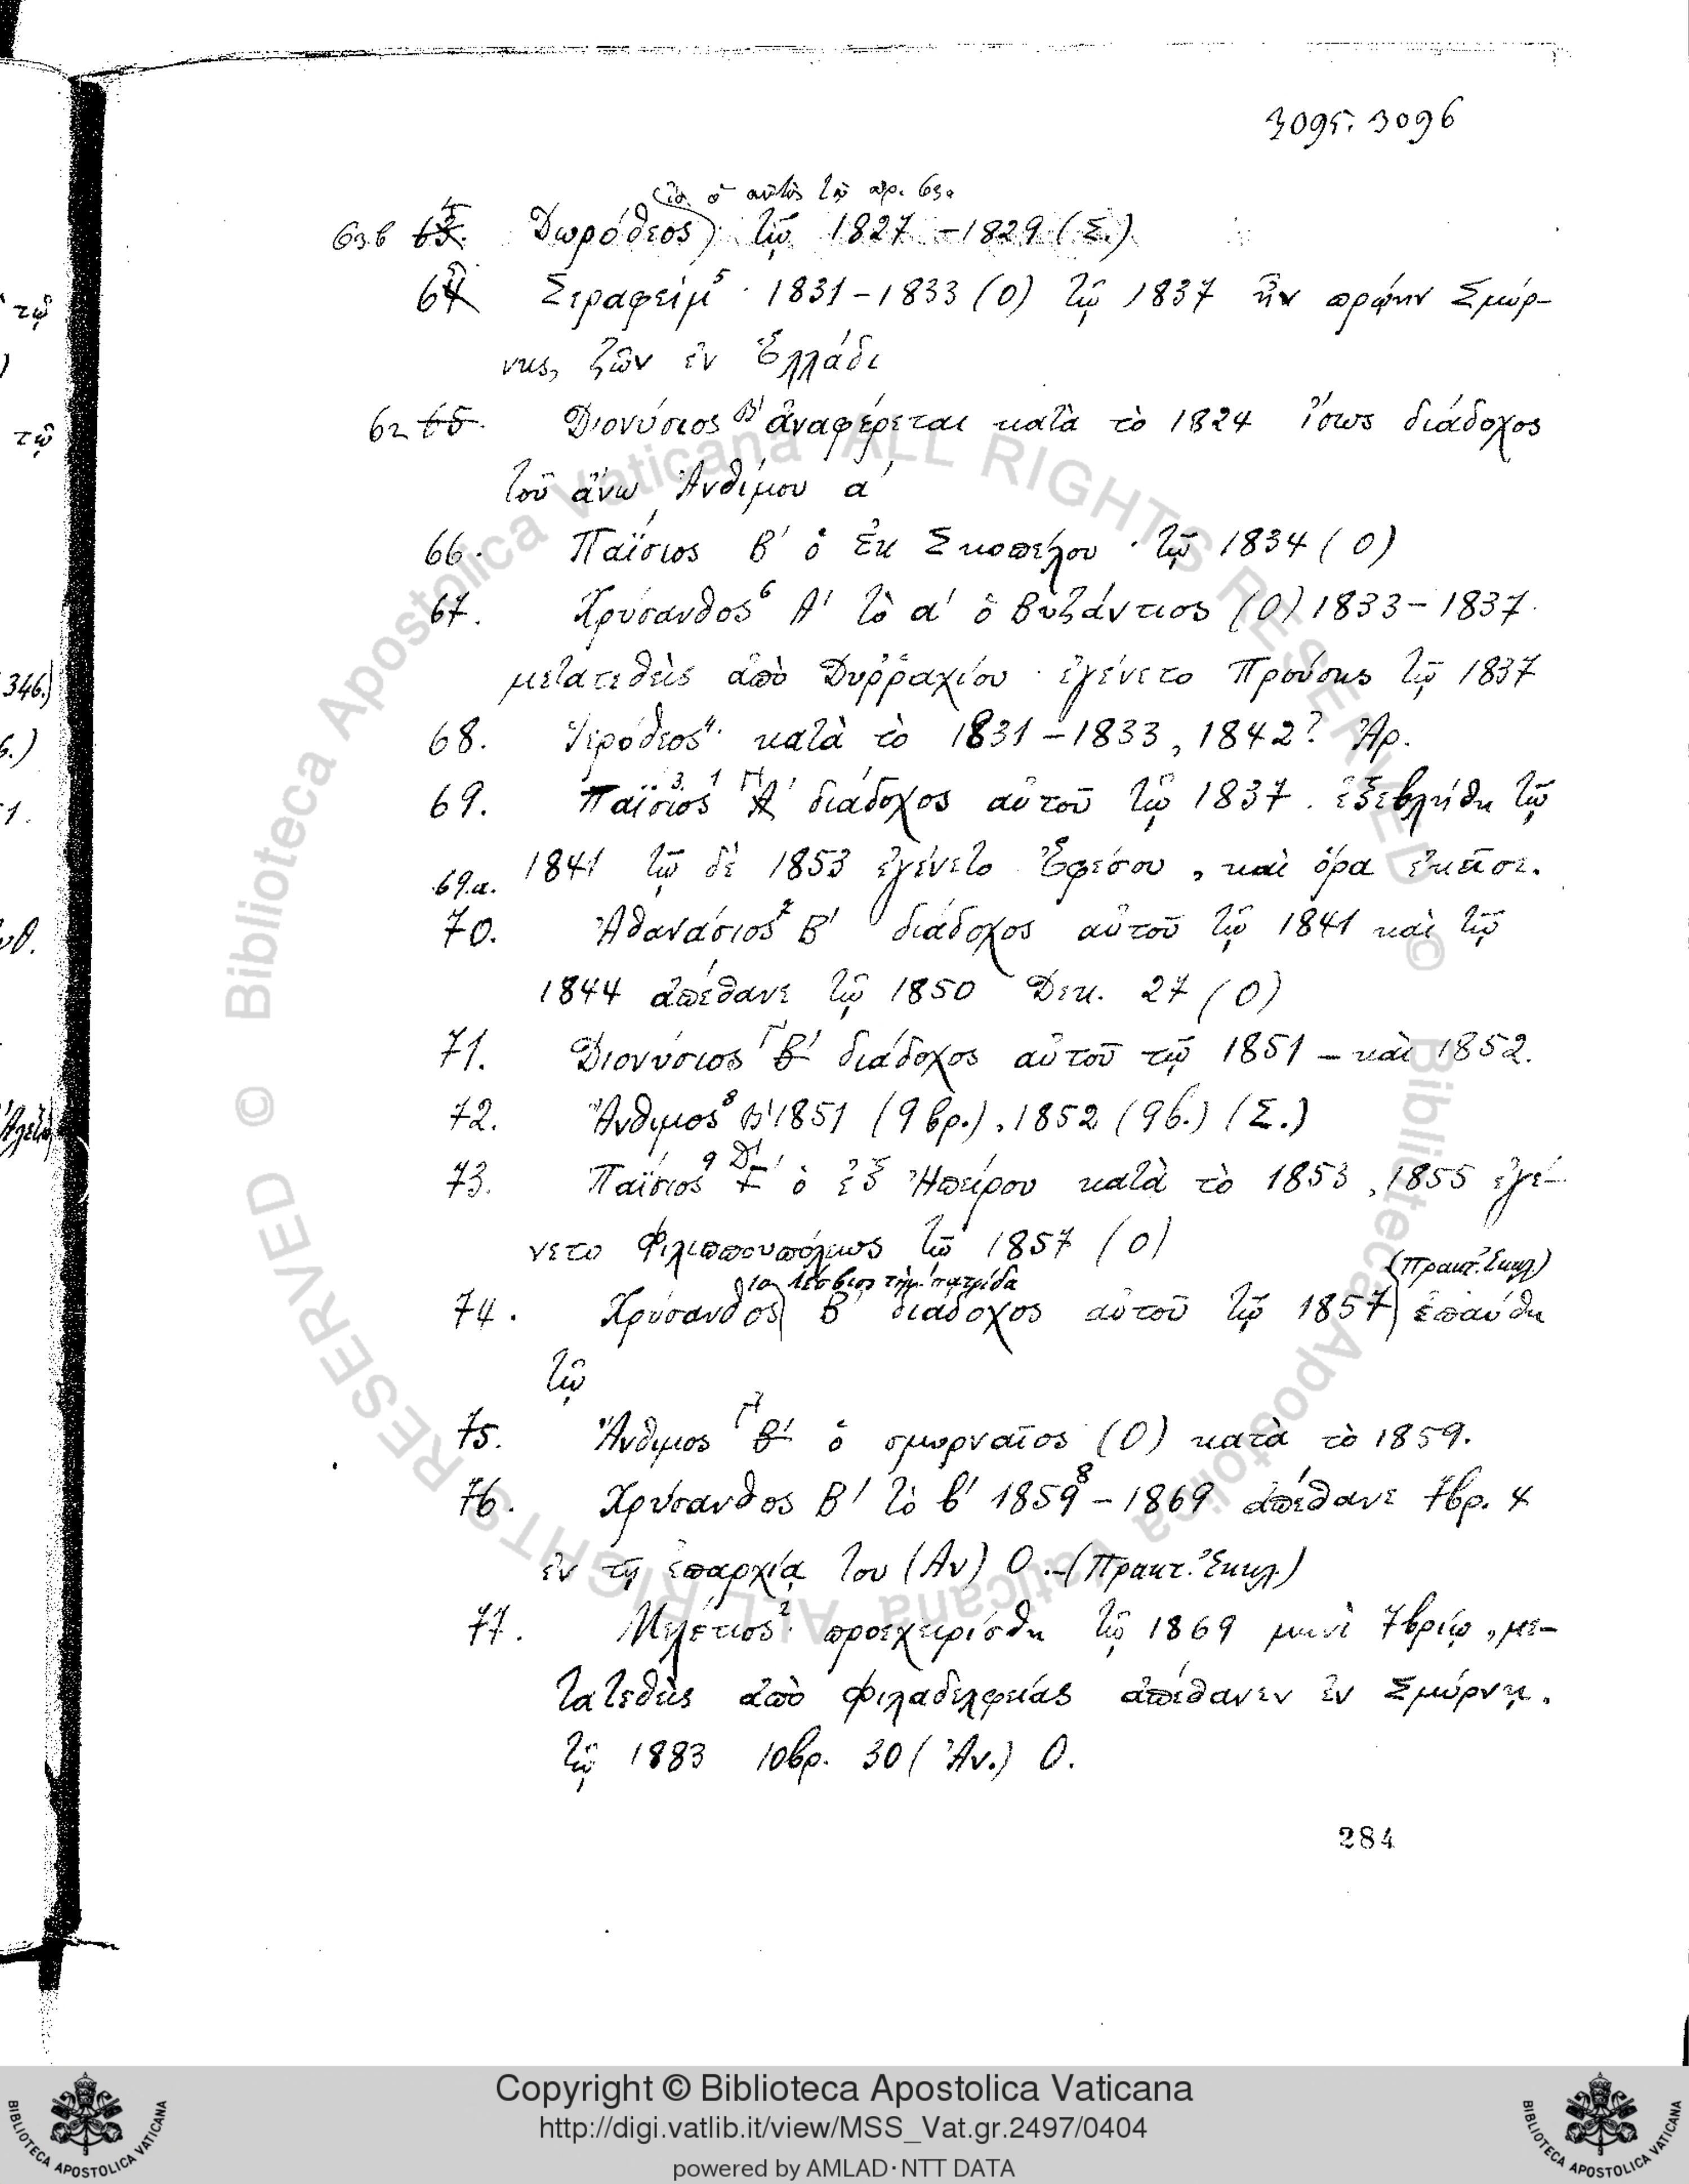 3095. 3096
ὁ αὐτὸς τῷ ἀρ. 63α
63β 63. Δωρόθεος τῷ 1827 – 1829 (Σ.)
64 Σεραφείμ⁵ · 1831 – 1833 (Ο) τῷ 1837 ἦν πρώην Σμύρ-
νης, ζῶν ἐν Ἑλλάδι
62 65. Διονύσιος Β′ ἀναφέρεται κατὰ τὸ 1824 ἴσως διάδοχος
τοῦ ἄνω Ἀνθίμου α′
66. Παΐσιος Β′ ὁ ἐκ Σκοπέλου · τῷ 1834 (Ο)
67. Χρύσανθος⁶ Α′ τὸ α′ ὁ Βυζάντιος (Ο) 1833 – 1837.
μετατεθεὶς ἀπὸ Δυῤῥαχίου · ἐγένετο Προύσης τῷ 1837
68. Ἱερόθεος⁴· κατὰ τὸ 1831 – 1833, 1842? Ἀρ.
69. Παΐσιος Γ′ Α′ διάδοχος αὐτοῦ τῷ 1837. ἐξεβλήθη τῷ
1841 τῷ δὲ 1853 ἐγένετο Ἐφέσου, καὶ ὅρα ἐκεῖσε.
69.α.
70. Ἀθανάσιος⁷ Β′ διάδοχος αὐτοῦ τῷ 1841 καὶ τῷ
1844 ἀπέθανε τῷ 1850 Δεκ. 27 (Ο)
71. Διονύσιος Γ′ Β′ διάδοχος αὐτοῦ τῷ 1851 – καὶ 1852.
72. Ἄνθιμος⁸ Β′ 1851 (9βρ.), 1852 (9β.) (Σ.)
73. Παΐσιος⁹ Δ′ Γ′ ὁ ἐξ Ἠπείρου κατὰ τὸ 1853, 1855 ἐγέ-
νετο Φιλιππουπόλεως τῷ 1857 (Ο)
10 Λέσβιος τὴν πατρίδα (Πρακτ. Ἐκκλ)
74. Χρύσανθος Β′ διάδοχος αὐτοῦ τῷ 1857 ἐπαύθη
τῷ
75. Ἄνθιμος Γ′ Β′ ὁ σμυρναῖος (Ο) κατὰ τὸ 1859.
76. Χρύσανθος Β′ τὸ β′ 1859⁸ – 1869 ἀπέθανε 7βρ. 4
ἐν τῇ ἐπαρχίᾳ του (Αν) Ο. – (Πρακτ. Ἐκκλ.)
77. Μελέτιος² · προεχειρίσθη τῷ 1869 μηνὶ 7βρίῳ, με-
τατεθεὶς ἀπὸ Φιλαδελφείας ἀπέθανεν ἐν Σμύρνῃ.
τῷ 1883 10βρ. 30 (Ἀν.) Ο.
284
τῷ
τῷ
346.)
© Biblioteca Apostolica Vaticana ALL RIGHTS RESERVED
© Biblioteca Apostolica Vaticana ALL RIGHTS RESERVED
Copyright © Biblioteca Apostolica Vaticana
http://digi.vatlib.it/view/MSS_Vat.gr.2497/0404
powered by AMLAD·NTT DATA
BIBLIOTECA APOSTOLICA VATICANA
BIBLIOTECA APOSTOLICA VATICANA